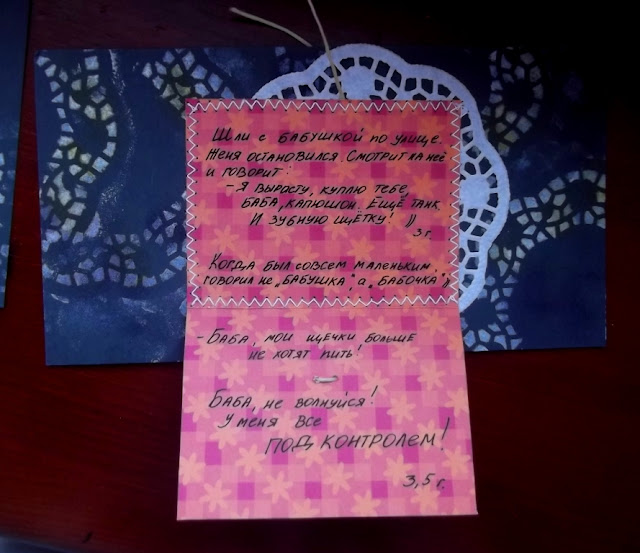 Шли с бабушкой по улице.
Женя остановился. Смотрит на неё
и говорит:
- Я вырасту, куплю тебе,
баба, капюшон. Ещё танк.
И зубную щётку! ))
3 г.
Когда был совсем маленьким,
говорил не „бабушка", а „бабочка" ))
- Баба, мои щечки больше
не хотят пить!
Баба, не волнуйся!
У меня все
ПОД КОНТРОЛЕМ!
3,5 г.